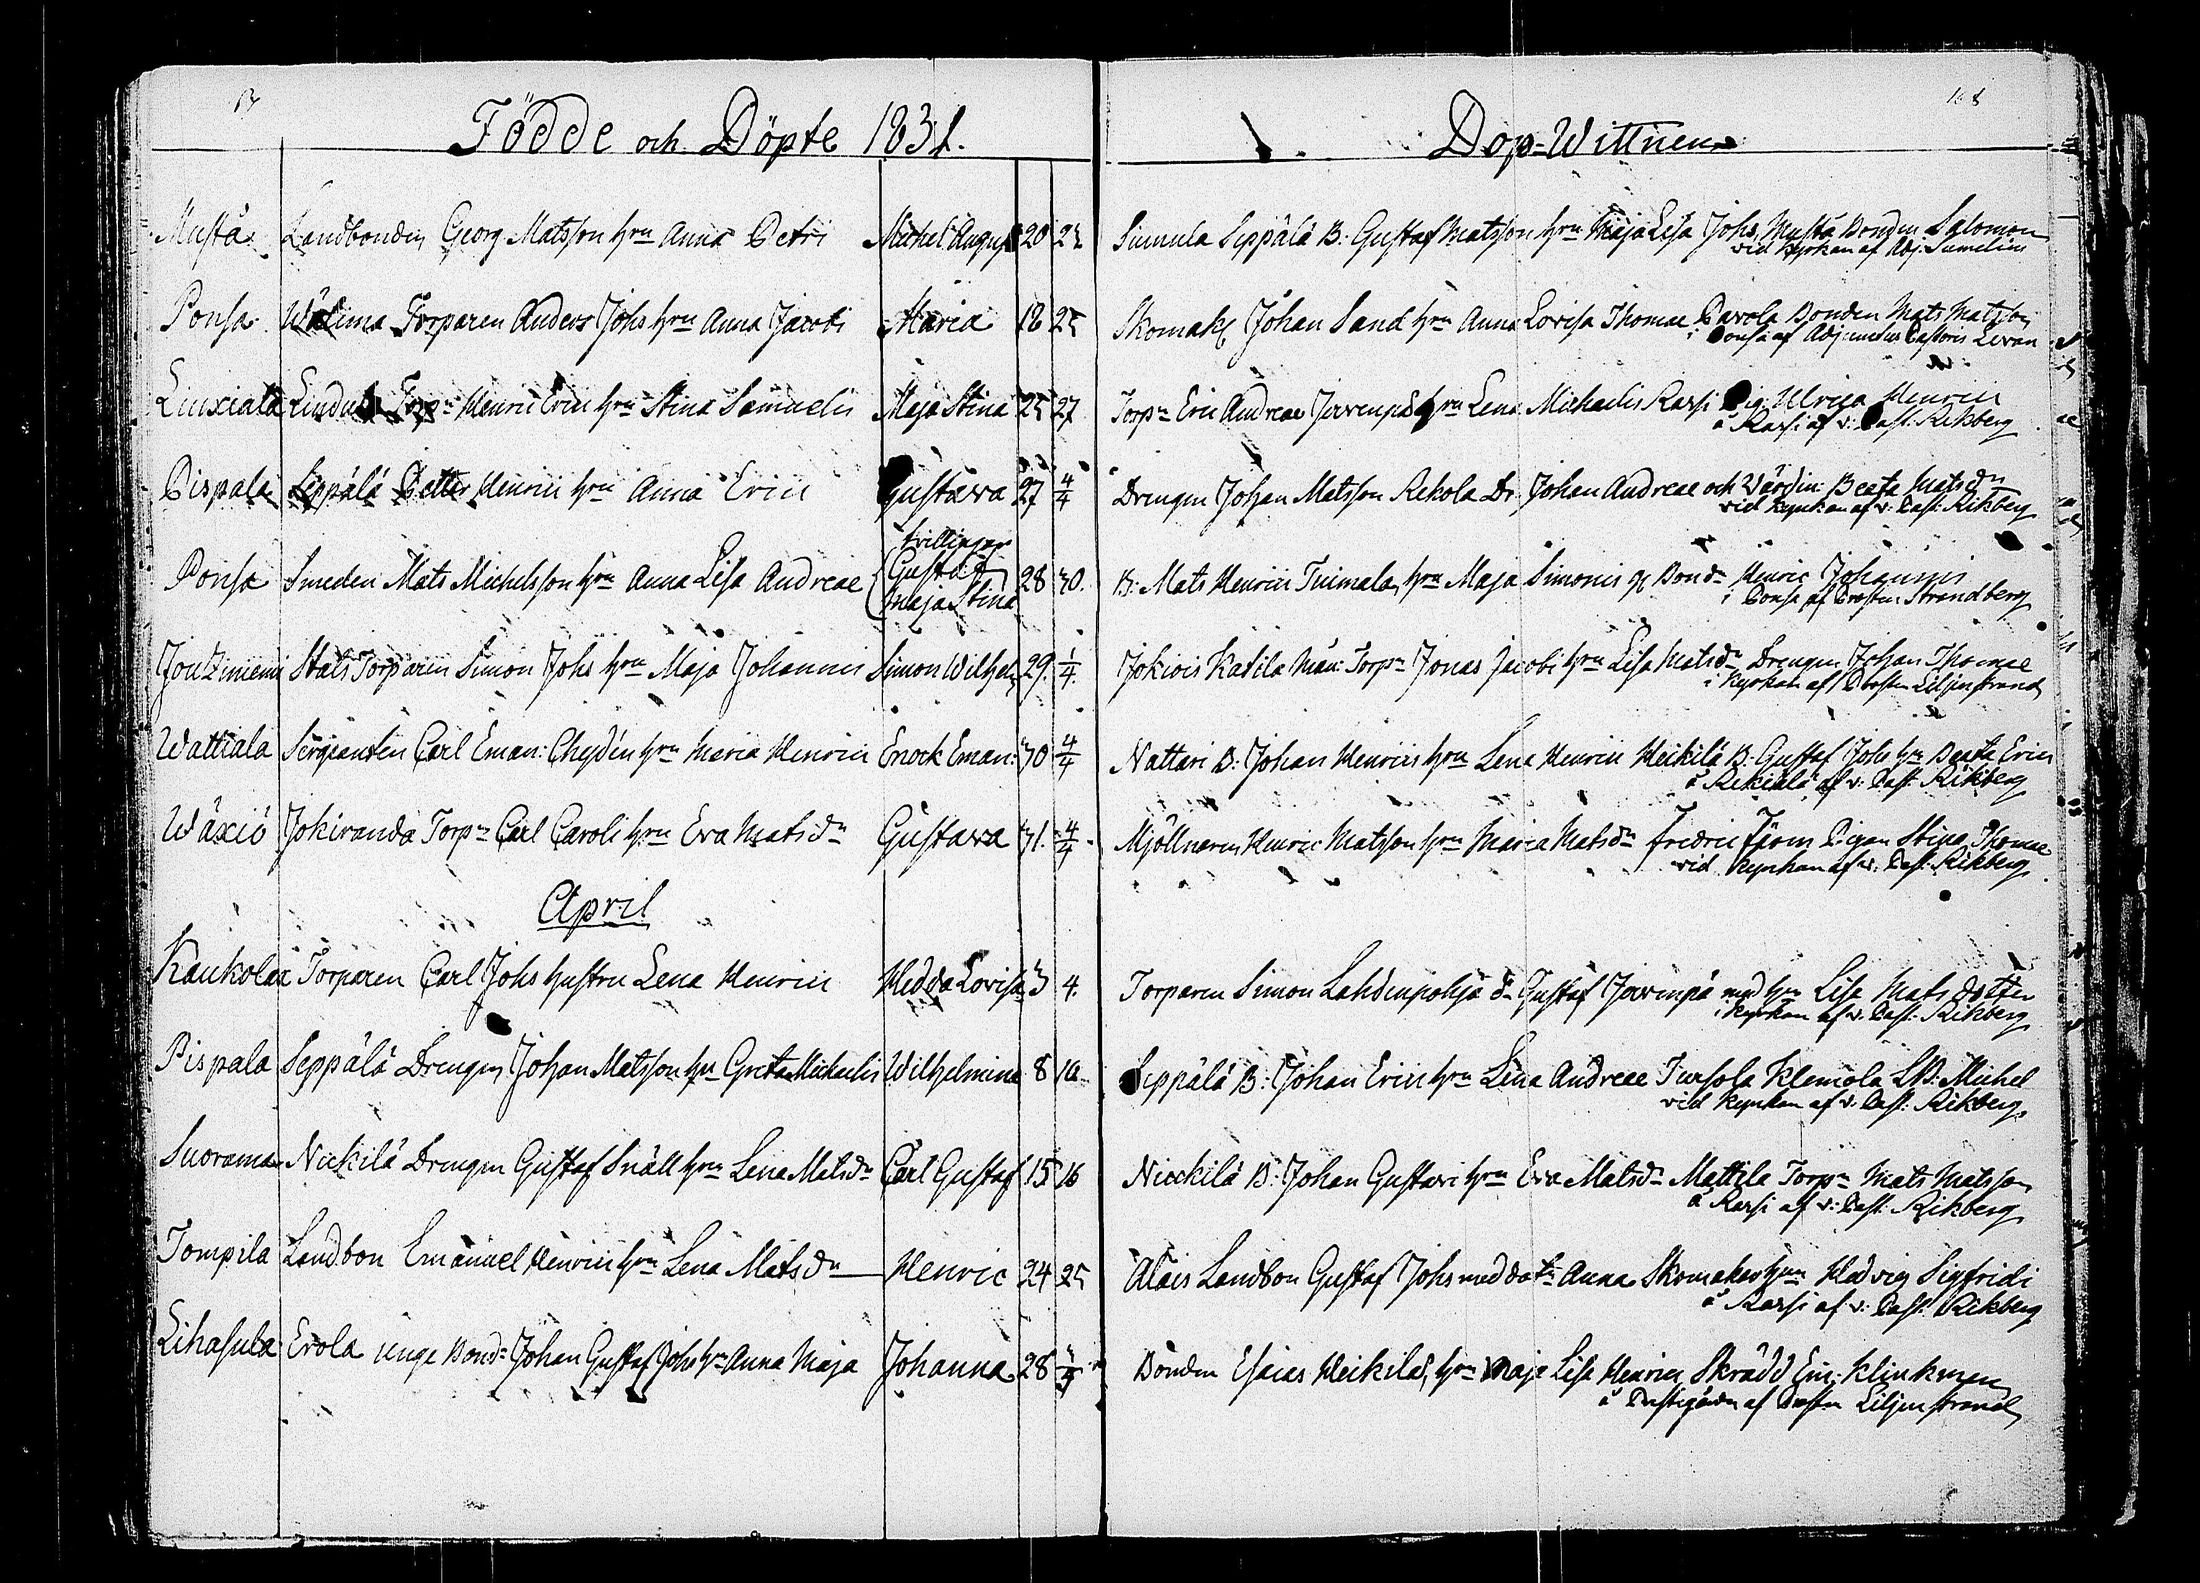 Födde och Döpte 1831.
Mustá Landbonden Georg Matsson hru Anna Petri Michel August 20 25
Ponsa Wälima Torparen Anders Johs hru Anna Jacobi Maria 18 25
Liuxiala Torpn Henric Erici hru Stina Samuelis Maja Stina 25 27
Pispala Seppälä Petter Henrici hru Anna Erici Gustava 27 4/4
Ponsa Smeden Mats Michelsson hru Anna Lisa Andreae trillingar Gustaf Maja Stina 28 30.
Stats Torparen Simon Johs hru Maja Johannis Simon Wilhelm 29. 1/4.
Wattiala Sergeanten Carl Eman: Chydén hru Maria Henrici Enock Eman: 30 4/4
Wäxiö Jokiranda Torpn Carl Caroli hru Eva Matsdr Gustava 31. 4/4
April
Kaukola Torparen Carl Johs hustru Lena Henrici Hedda Lovisa 3 4.
Pispala Seppälä Drengen Johan Matsson hru Greta Michaelis Wilhelmina 8 10
Suorama Nickilä Drengen Gustaf Snäll hru Lena Matsdr Carl Gustaf 15 16
Tompila Landbon Emanuel Henrici hru Lena Matsdr Henric 24 25
Lihasula Erola unge Bond: Johan Gustaf Johs hru Anna Maja Johanna 28
168
Dop-Wittnen
Seppälä B: Gustaf Matsson hru Maja Lisa Johs, Mustá Bonden Salomon
vid Kyrkan af Adj. Sumelius
Skomak Johan Sand hru Anna Lovisa Thomae, Pavola Bonden Mats Matsson
i Ponsa af Adjunctus Pastoris Levan
Torpn Eric Andreae Järvenpä hru Lena Michaelis Rassi Pig. Ulrica Henrici
á Rassi af v: Past: Rikberg
Drengen Johan Matsson Rekola Dr: Johan Andreae och Wärdin: Beata Matsdr
vid Kyrkan af v: Past: Rikberg
B: Mats Henrici Tuimala, hru Maja Simonis Bond: Henric Johannis
i Ponsa af Prosten Strandberg
Jokiois Katila Torpn Jonas Jacobi hru Lisa Matsdr Drengen Johan Thomae
i Kyrkan af Prosten Liljenstrand
Nattari B: Johan Henrici hru Lena Henrici Heikilä B: Gustaf Johs hru Beata Erici
á Rekiälä af v: Past: Rikberg
Mjöllnaren Henric Matsson hru Maria Matsdr Fredric Pigan Stina Thomae
vid Kyrkan af v: Past: Rikberg
Torparen Simon Lahdenpohja Gustaf Järvenpä med hru Lisa Matsdotter
i Kyrkan af v: Past: Rikberg
Seppälä B: Johan Erici hru Lena Andreae Tursola Klemola LB: Michel
vid Kyrkan af v: Past: Rikberg
Nickilä B: Johan Gustavi hru Eva Matsdr Mattila Torpn Mats Matsson
á Rassi af v: Past: Rikberg
Alais Landbon Gustaf Johs med dotr Anna Skomakar hru Hedvig Sigfridi
á Rassi af v: Past: Rikberg
Bonden Esaias Heikilä, hru Maja Lisa Henrici, Skrädd Em: Klinkman
á Prestgården af Prosten Liljenstrand